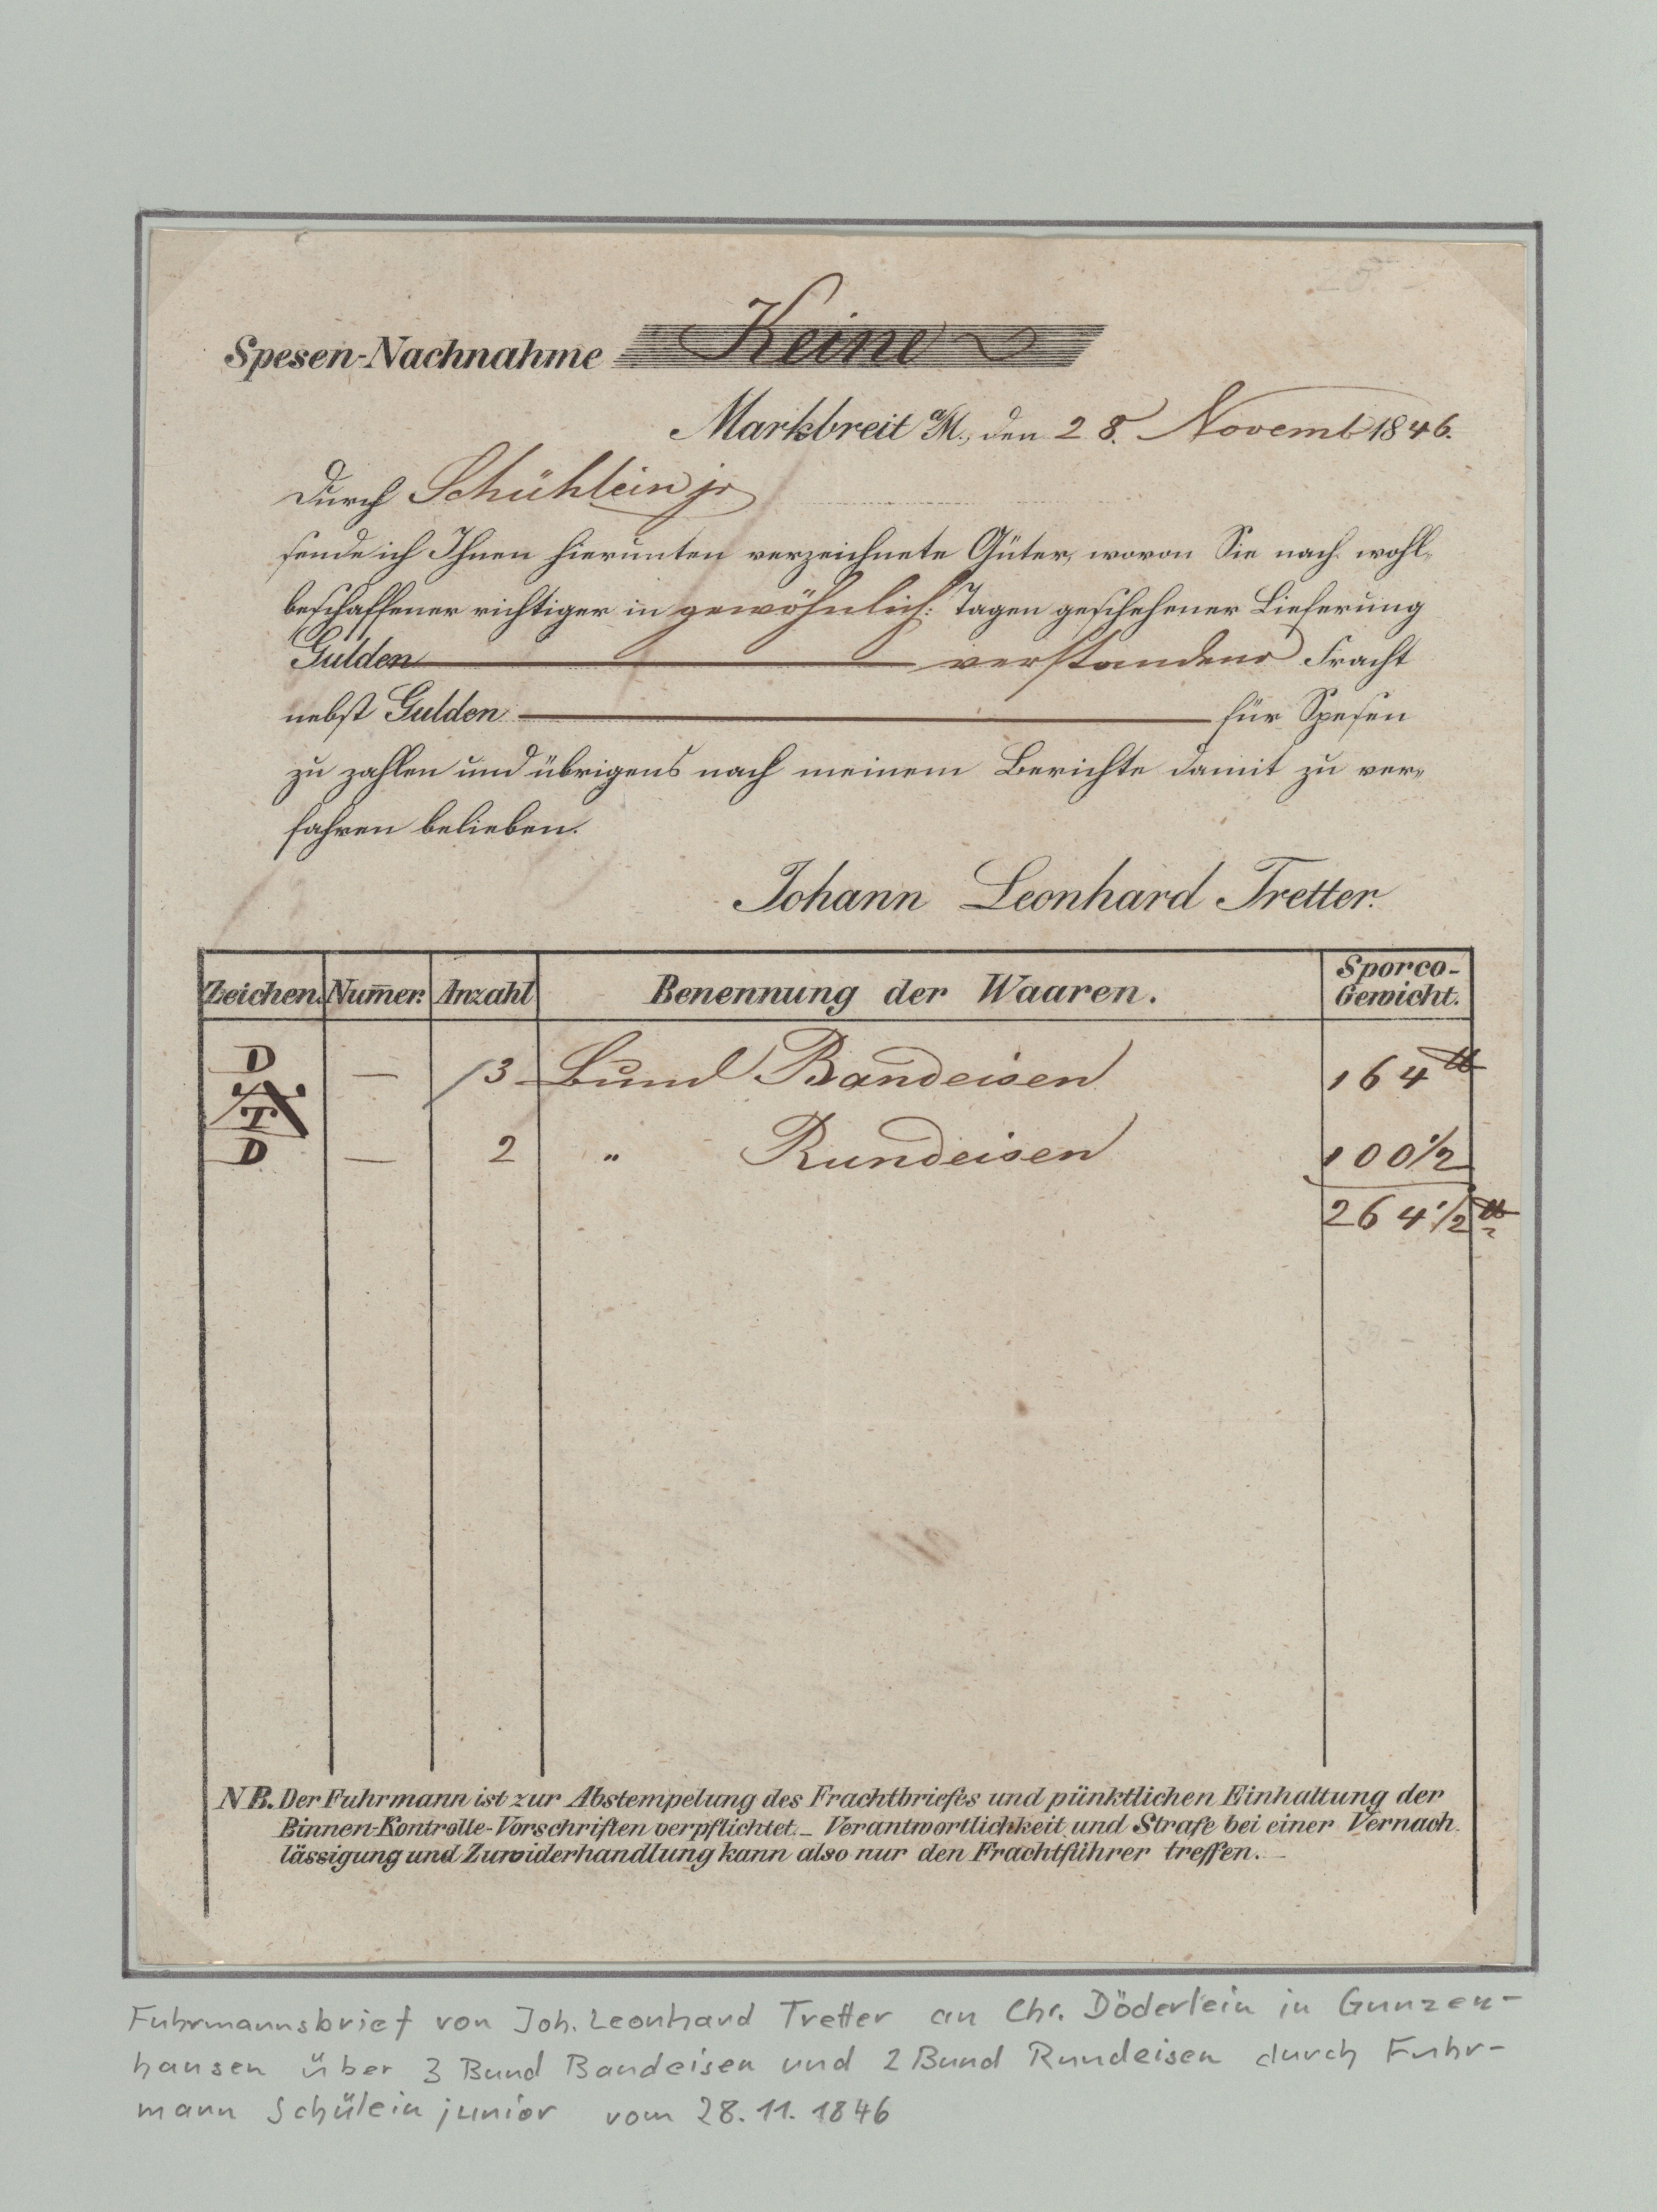 Spesen-Nachnahme Keine
Marktbreit a/M., den 28. Novemb 1846.
Durch Schühlein jr
sende ich Ihnen hierunten verzeichnete Güter, wovon Sie nach wohl-
beschaffener richtiger in gewöhnlich: Tagen geschehener Lieferung
Gulden verstandene Fracht
nebst Gulden für Spesen
zu zahlen und übrigens nach meinem Berichte damit zu ver-
fahren belieben.
Johann Leonhard Tretter.
Zeichen. Num̄er. Anzahl Benennung der Waaren. Sporco-Gewicht.
D — 3 Bund Bandeisen 164 ℔
T
D — 2 " Rundeisen 100 1/2
264 1/2 ℔
NB. Der Fuhrmann ist zur Abstempelung des Frachtbriefes und pünktlichen Einhaltung der
Binnen-Kontrolle-Vorschriften verpflichtet. – Verantwortlichkeit und Strafe bei einer Vernach
lässigung und Zuwiderhandlung kann also nur den Frachtführer treffen. –
Fuhrmannsbrief von Joh. Leonhard Tretter an Chr. Döderlein in Gunzen-
hausen über 3 Bund Bandeisen und 2 Bund Rundeisen durch Fuhr-
mann Schülein junior vom 28.11.1846